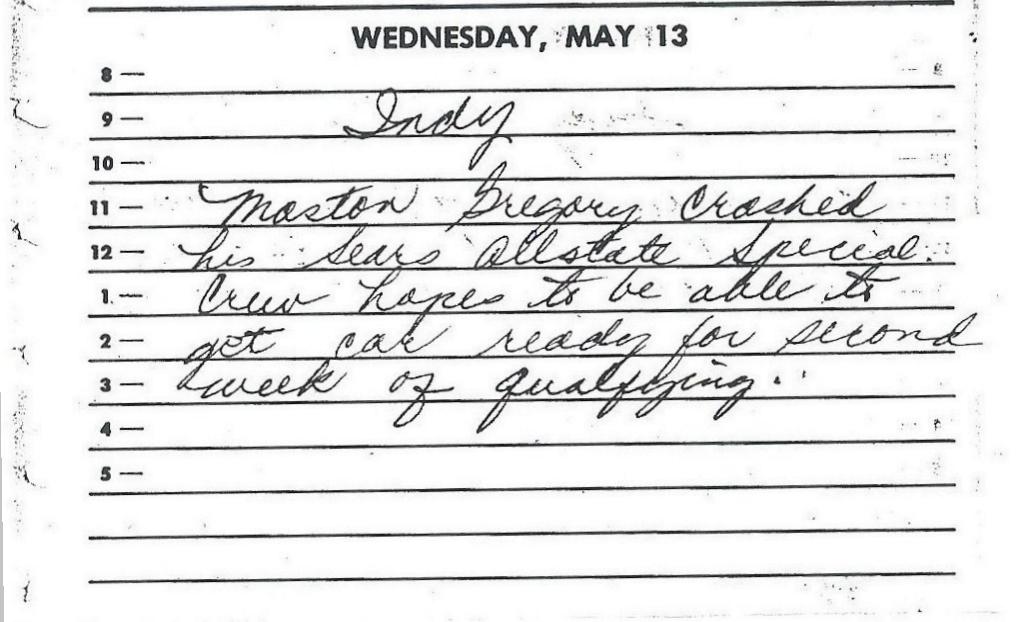 WEDNESDAY, MAY 13
8 —
9 — Indy
10 —
11 — Maston Gregory Crashed
12 — his Sears Allstate Special.
1 — Crew hopes to be able to
2 — get car ready for second
3 — week of qualfying.
4 —
5 —